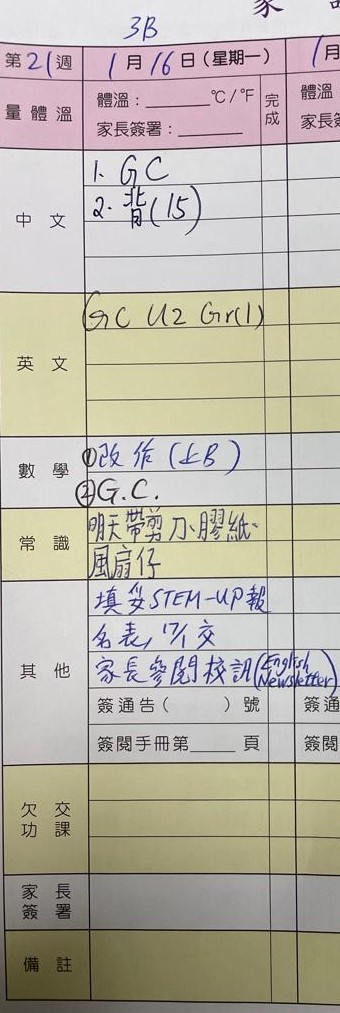 3B
家
第21週 1月16日(星期一) 1月
量體溫 體溫:______℃/℉ 完成 體溫
家長簽署:______ 家長簽
中文 1. GC
2. 背(15)
英文 GC U2 Gr(1)
數學 ①改作(上B)
②G.C.
常識 明天帶剪刀、膠紙、
風扇仔
其他 填妥STEM-UP報
名表, 17/1交
家長參閱校訊(English Newsletter)
簽通告( )號 簽通
簽閱手冊第____頁 簽閱
欠交功課
家長簽署
備註